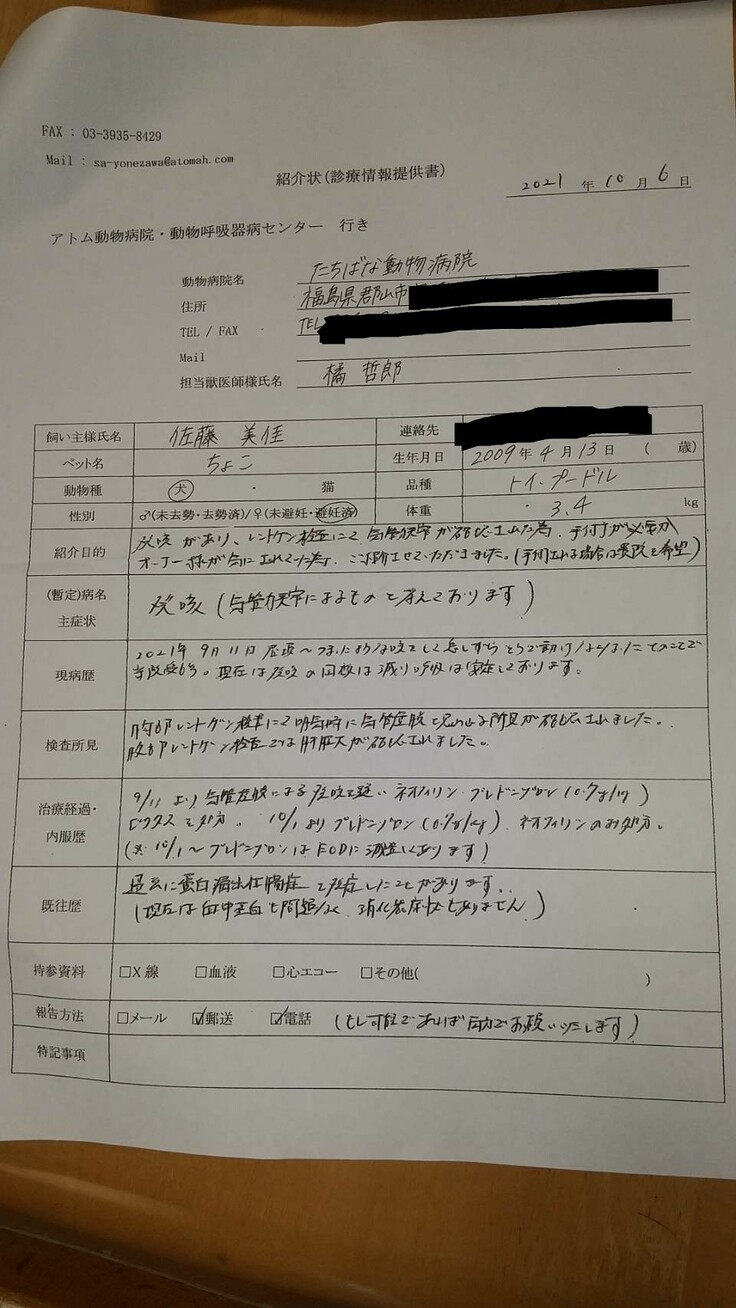 FAX : 03-3935-8429
Mail : sa-yonezawa@atomah.com
紹介状(診療情報提供書)
2021 年 10 月 6 日
アトム動物病院・動物呼吸器病センター 行き
動物病院名 たちばな動物病院
住所 福島県郡山市
TEL / FAX TEL
Mail
担当獣医師様氏名 橘 哲郎
飼い主様氏名 佐藤 美佳 連絡先
ペット名 ちょこ 生年月日 2009年 4月 13日 ( 歳)
動物種 犬 ・ 猫 品種 トイ・プードル
性別 ♂(未去勢・去勢済)/♀(未避妊・避妊済) 体重 3.4 kg
紹介目的 発咳があり、レントゲン検査にて気管虚脱が認められた為、手術が必要か
オーナー様が気にされていた為、ご紹介させていただきました。(手術される場合は貴院を希望)
(暫定)病名
主症状
発咳 (気管虚脱によるものと考えております)
現病歴 2021年 9月11日
現在は発咳の回数は減り呼吸は安定しております。
検査所見 胸部レントゲン検査にて吸気時に気管虚脱と思われる所見が認められました。
腹部レントゲン検査では肝腫大が認められました。
治療経過・
内服歴
9/11 より気管虚脱による発咳を疑い ネオフィリン・プレドニゾロン
を処方。 10/1 より プレドニゾロン 、ネオフィリンのみ処方。
(※ 10/1~プレドニゾロンはEODに減量しております)
既往歴 過去に蛋白漏出性腸症を発症したことがあります。
(現在は血中蛋白も問題なく、消化器症状もありません)
持参資料 □X 線 □血液 □心エコー □その他( )
報告方法 □メール ☑郵送 ☑電話 (もし可能であれば両方でお願いいたします)
特記事項